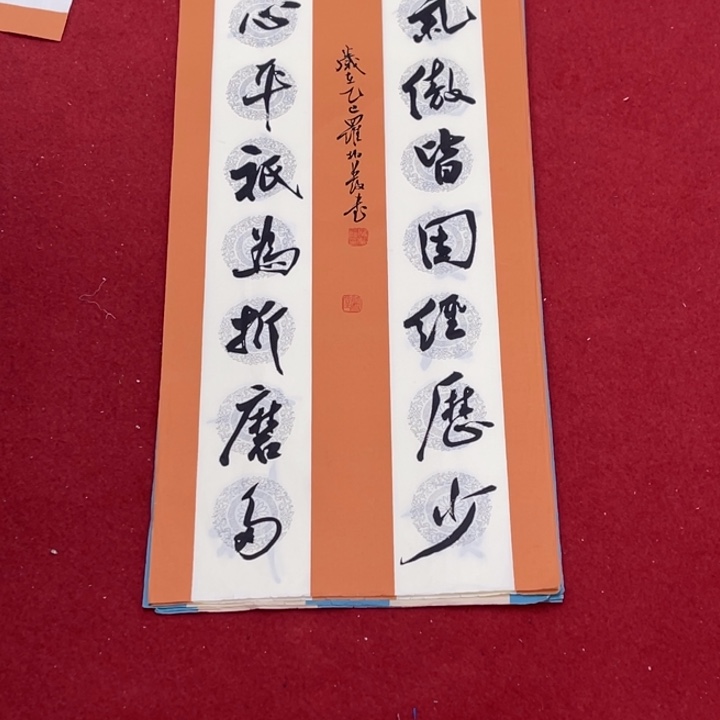 氣傲皆因經歷少
歲在乙巳羅
書
心平祇為折磨多